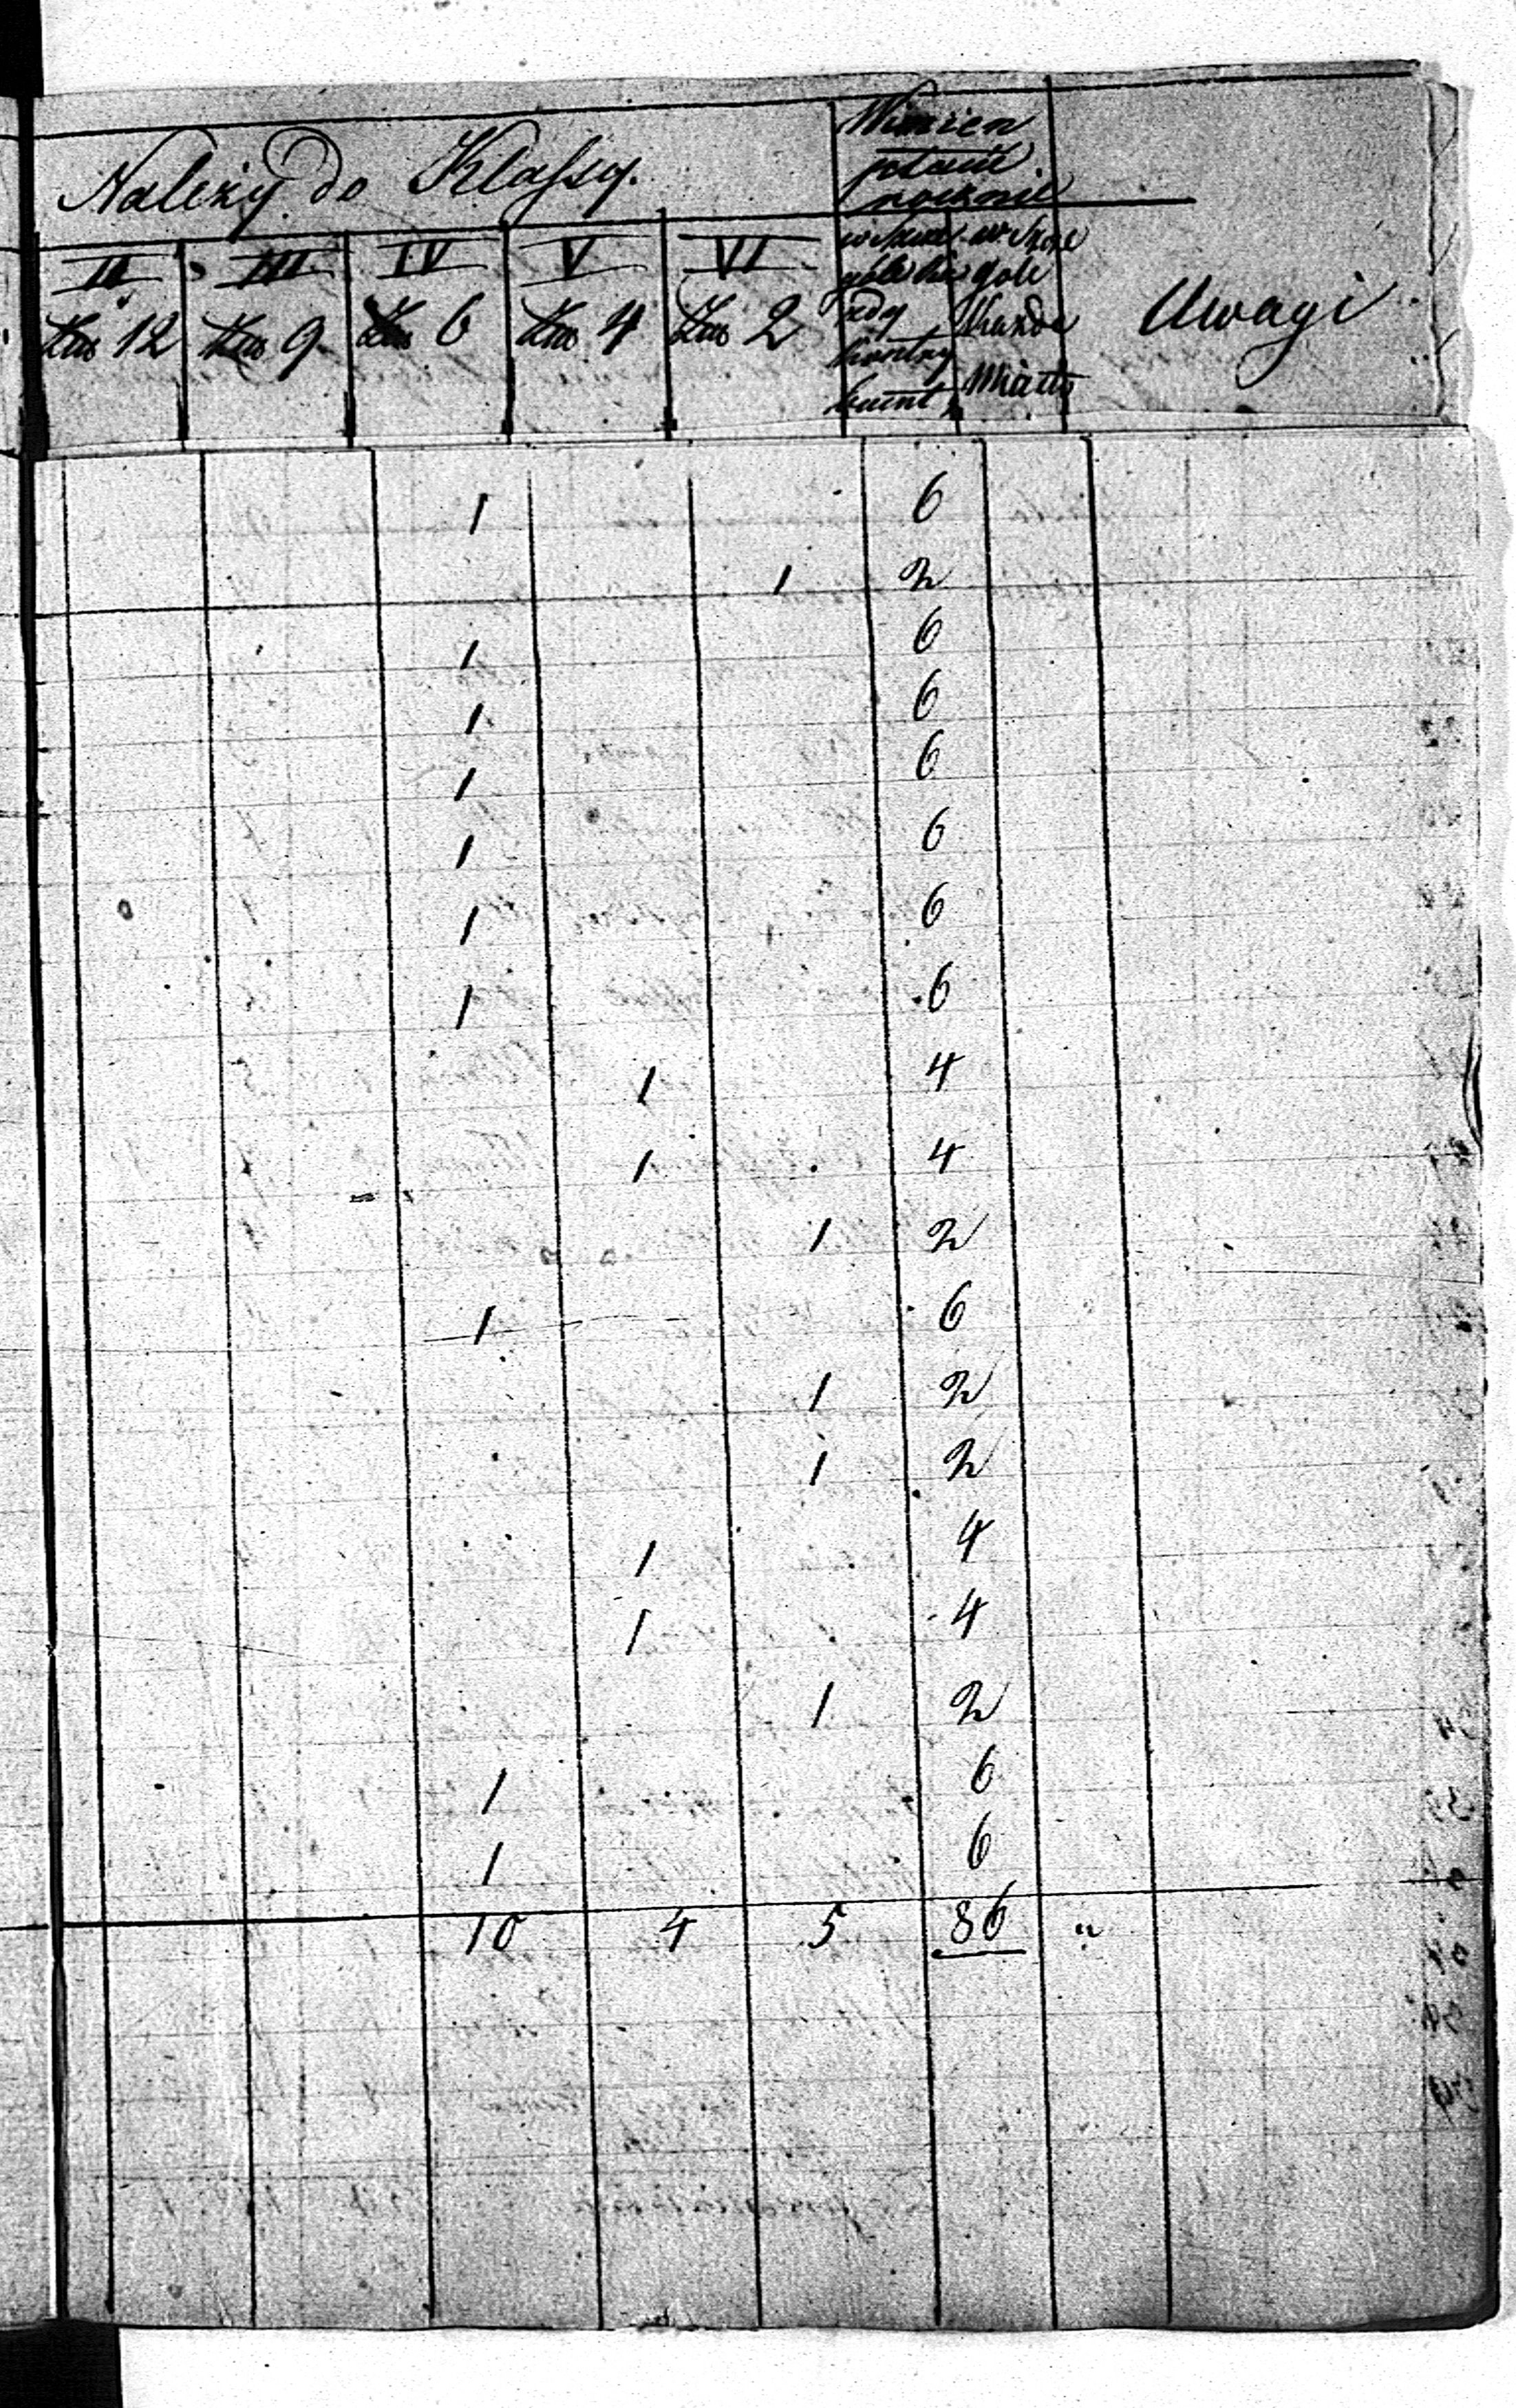 Należy do Klassy.
Winien
płacić
rocznie
II III IV V VI
12 9 6 4 2
w szcze w Szcze
góle każ góle
kżdy Każde
kontry Miasto
buent
Uwagi
1 6
1 2
1 6
1 6
1 6
1 6
1 6
1 6
1 4
1 4
1 2
1 6
1 2
1 2
1 4
1 4
1 2
1 6
1 6
10 4 5 86 "